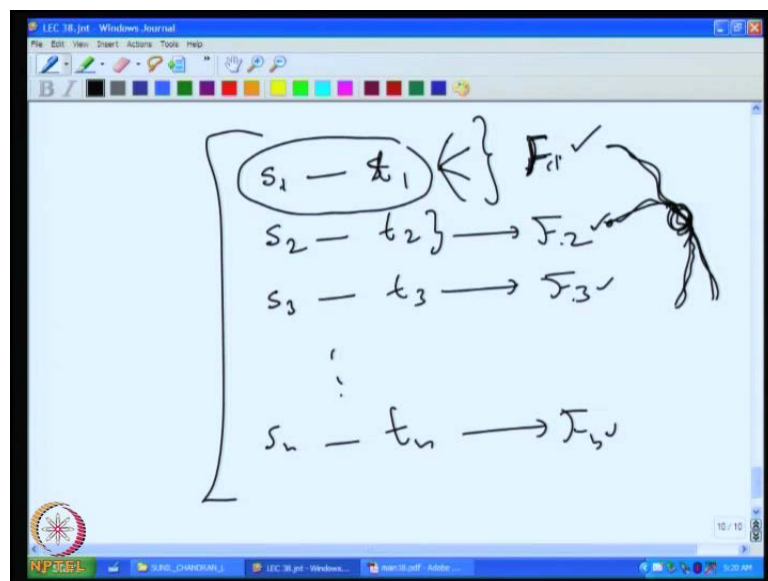 LEC 38.jnt - Windows Journal
File Edit View Insert Actions Tools Help
B I
s₁ — t₁ } F₁ ✓
s₂ — t₂ } ⟶ F₂ ✓
s₃ — t₃ ⟶ F₃ ✓
⋮
sₙ — tₙ ⟶ Fₙ ✓
10 / 10
NPTEL SUNIL_CHANDRAN_L LEC 38.jnt - Windows... main38.pdf - Adobe ... 5:20 AM